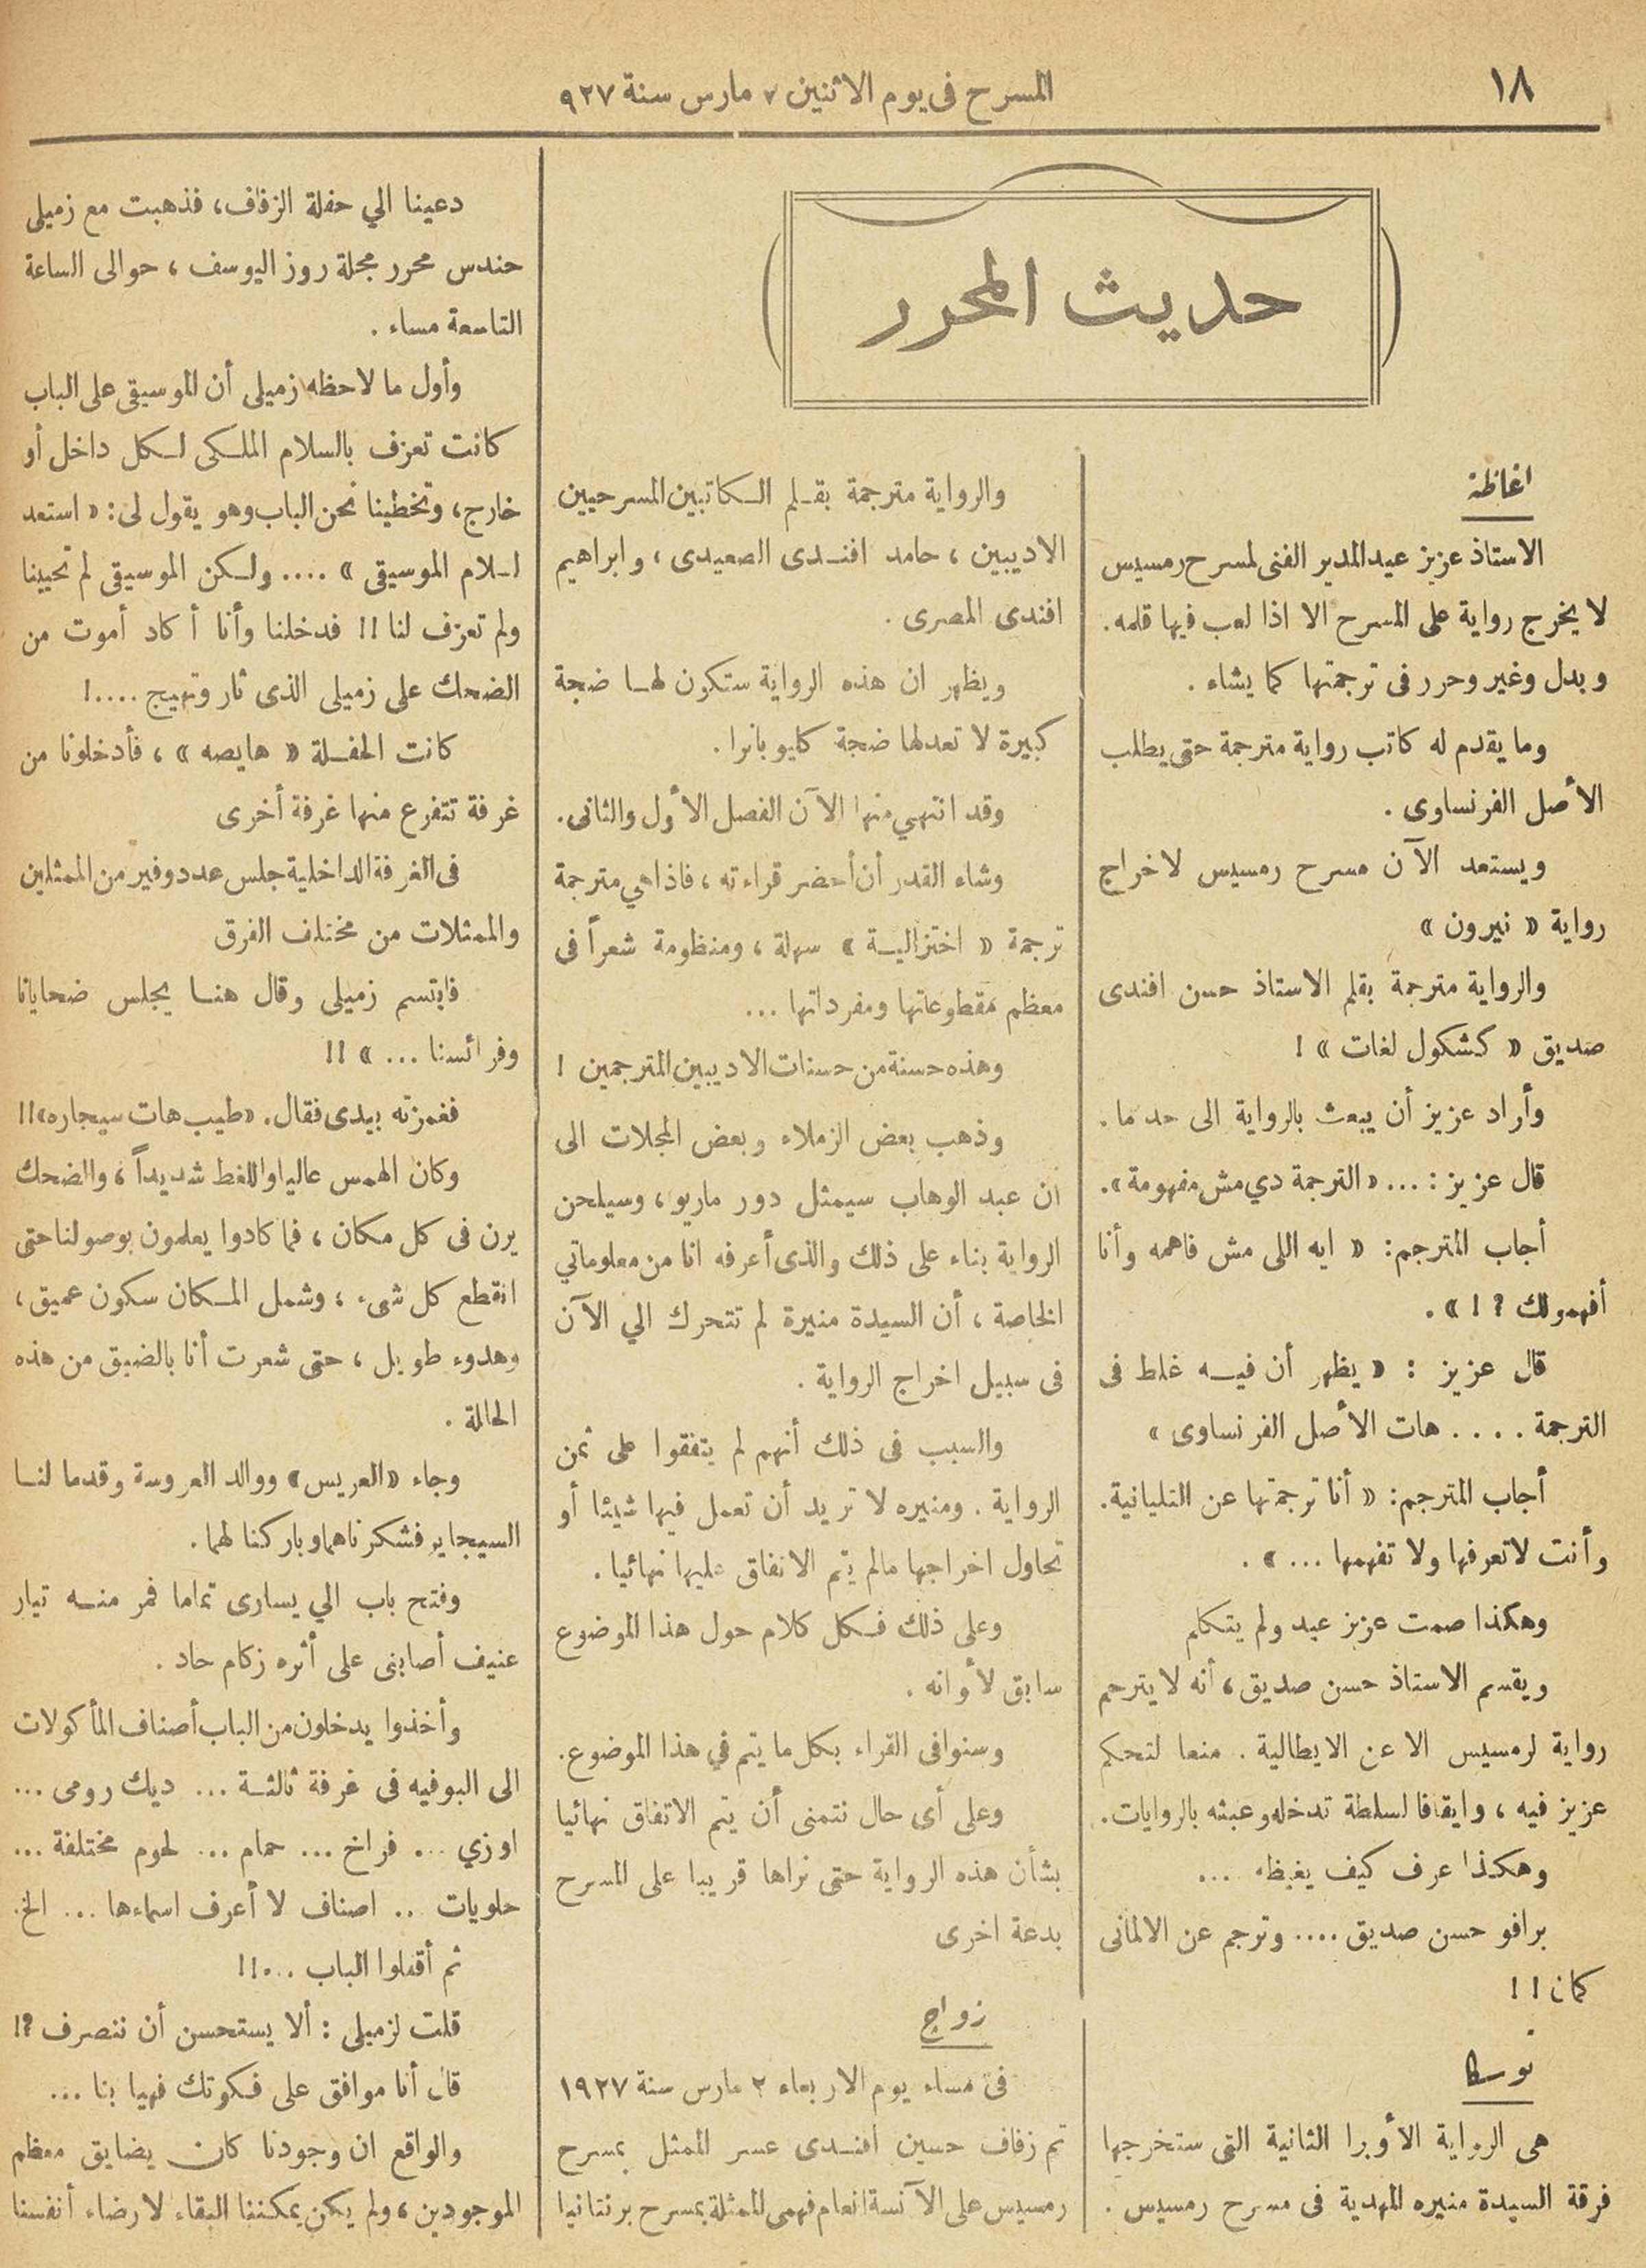 ١٨
المسرح فى يوم الاثنين ٧ مارس سنة ٩٢٧
حديث المحرر
اغاظة
الاستاذ عزيز عيد المدير الفنى لمسرح رمسيس
لا يخرج رواية على المسرح الا اذا لعب فيها قلمه.
وبدل وغير وحرر فى ترجمتها كما يشاء .
وما يقدم له كاتب رواية مترجمة حتى يطلب
الأصل الفرنساوى .
ويستعد الآن مسرح رمسيس لاخراج
رواية « نيرون »
والرواية مترجمة بقلم الاستاذ حسن افندى
صديق « كشكول لغات » !
وأراد عزيز أن يبعث بالرواية الى حد ما .
قال عزيز : ... « الترجمة دي مش مفهومة ».
أجاب المترجم : « ايه اللى مش فاهمه وأنا
أفهمولك ؟ ! » .
قال عزيز : « يظهر أن فيه غلط فى
الترجمة .... هات الأصل الفرنساوى »
أجاب المترجم : « أنا ترجمتها عن التليانية.
وأنت لا تعرفها ولا تفهمها ... » .
وهكذا صمت عزيز عيد ولم يتكلم
ويقسم الاستاذ حسن صديق، أنه لا يترجم
رواية لرمسيس الا عن الايطالية . منعا لتحكم
عزيز فيه ، وايقافا لسلطة تدخله وعبثه بالروايات.
وهكذا عرف كيف يغيظه ...
برافو حسن صديق .... وترجم عن الالمانى
كمان ! !
توسكا
هى الرواية الأوبرا الثانية التى ستخرجها
فرقة السيدة منيره المهدية فى مسرح رمسيس .
والرواية مترجمة بقلم الكاتبين المسرحيين
الاديبين ، حامد افندى الصعيدى ، وابراهيم
افندى المصرى .
ويظهر ان هذه الرواية ستكون لها ضجة
كبيرة لا تعدلها ضجة كليوباترا .
وقد انتهي منها الآن الفصل الأول والثانى.
وشاء القدر أن أحضر قراءته ، فاذا هي مترجمة
ترجمة « اختزالية » سهلة ، ومنظومة شعراً فى
معظم مقطوعاتها ومفرداتها ...
وهذه حسنة من حسنات الاديبين المترجمين !
وذهب بعض الزملاء وبعض المجلات الى
ان عبد الوهاب سيمثل دور ماريو ، وسيلحن
الرواية بناء على ذلك والذى أعرفه انا من معلوماتي
الخاصة ، أن السيدة منيرة لم تتحرك الي الآن
فى سبيل اخراج الرواية .
والسبب فى ذلك أنهم لم يتفقوا على ثمن
الرواية . ومنيره لا تريد أن تعمل فيها شيئا أو
تحاول اخراجها مالم يتم الاتفاق عليها نهائيا .
وعلى ذلك فكل كلام حول هذا الموضوع
سابق لأوانه .
وسنوافى القراء بكل ما يتم في هذا الموضوع.
وعلى أى حال نتمنى أن يتم الاتفاق نهائيا
بشأن هذه الرواية حتى نراها قريبا على المسرح
بدعة اخرى
زواج
فى مساء يوم الاربعاء ٢ مارس سنة ١٩٢٧
تم زفاف حسين افندى عسر الممثل بمسرح
رمسيس على الآنسة انعام فهمى الممثلة بمسرح برنتانيا
دعينا الي حفلة الزفاف، فذهبت مع زميلى
حندس محرر مجلة روز اليوسف ، حوالى الساعة
التاسعة مساء .
وأول ما لاحظه زميلى أن الموسيقى على الباب
كانت تعزف بالسلام الملكى لكل داخل أو
خارج، وتخطينا نحن الباب وهو يقول لى : « استعد
لسلام الموسيقى » .... ولكن الموسيقى لم تحيينا
ولم تعزف لنا !! فدخلنا وأنا أكاد أموت من
الضحك على زميلى الذى ثار وتهيج ....!
كانت الحفلة « هايصه » ، فأدخلونا من
غرفة تتفرع منها غرفة أخرى
فى الغرفة الداخلية جلس عدد وفير من الممثلين
والممثلات من مختلف الفرق
فابتسم زميلى وقال هنا يجلس ضحايانا
وفرائسنا ... » !!
فغمزته بيدى فقال . « طيب هات سيجاره » !!
وكان الهمس عاليا واللغط شديداً ، والضحك
يرن فى كل مكان ، فما كادوا يعلمون بوصولنا حتى
انقطع كل شىء ، وشمل المكان سكون عميق ،
وهدوء طويل ، حتى شعرت أنا بالضيق من هذه
الحالة .
وجاء « العريس » ووالد العروسة وقدما لنا
السيجاير فشكرناهما وباركنا لهما .
وفتح باب الي يسارى تماما فمر منه تيار
عنيف أصابنى على أثره زكام حاد .
وأخذوا يدخلون من الباب أصناف المأكولات
الى البوفيه فى غرفة ثالثة ... ديك رومى ...
اوزي ... فراخ ... حمام ... لحوم مختلفة ...
حلويات .. اصناف لا أعرف اسماءها ... الخ.
ثم أقفلوا الباب ...!!
قلت لزميلى : ألا يستحسن أن ننصرف ؟!
قال أنا موافق على فكرتك فهيا بنا ...
والواقع ان وجودنا كان يضايق معظم
الموجودين ، ولم يكن يمكننا البقاء لارضاء أنفسنا